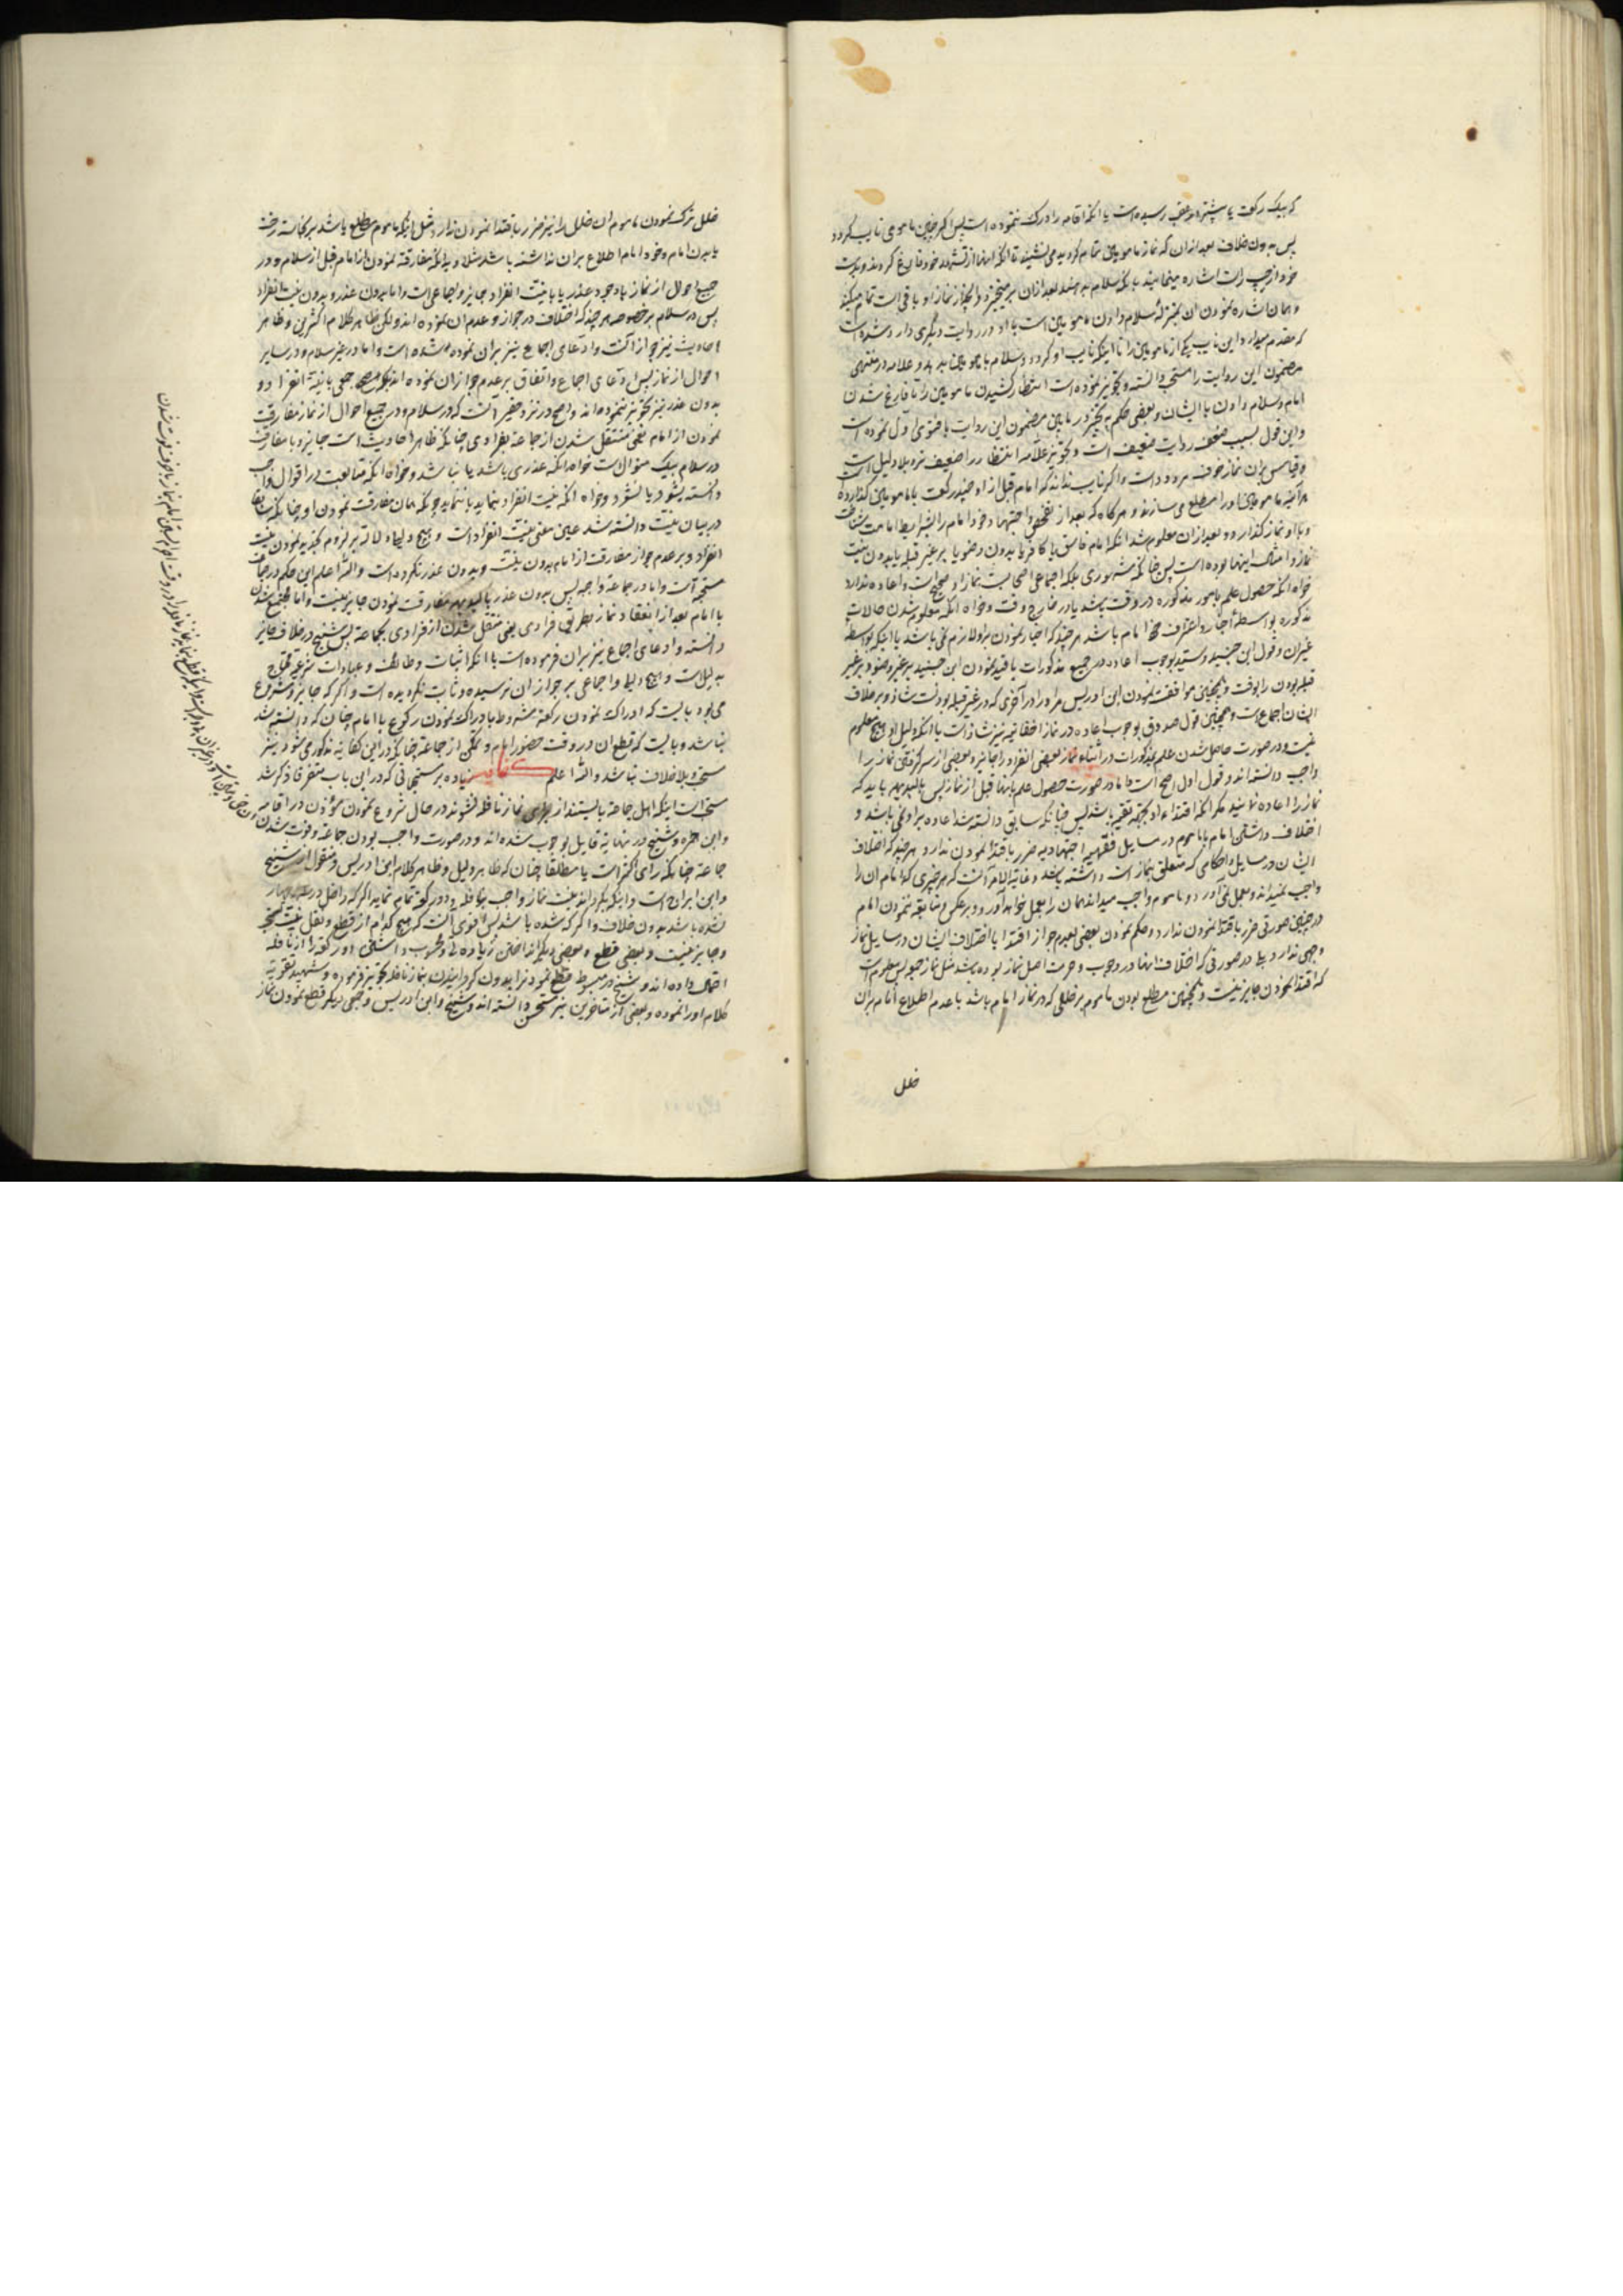 که بیک رکعت یا بیشتر رسیده است یا انکه اقامه را درک ننموده است پس اکر چنین مامومی نایب کردد
پس بدون خلاف بعد از ان که نماز مامومین تمام کردید می نشیند تا انکه انها از تشهد خود فارغ کردند و بدست
خود از چپ و راست اشاره مینماید بانکه سلام بعد از ان بر میخیزد و انچه از نماز او باقی است تمام میکند
و همان اشاره نمودن ان بمنزلهٔ سلام دادن مامومین است با او و در روایت دیگری وارد شده است
که مقدم میدارد این نایب یکی از مامومین را تا اینکه نایب او کردد و سلام با مامومین بدهد و علامه در منتهی
مضمون این روایت را مستحب دانسته و تجویز نموده است انتظار کشیدن مامومین را تا فارغ شدن
امام و سلام دادن با ایشان و بعضی حکم بتخییر در مابین مضمون این روایت با فتوی اول نموده است
و این قول بسبب ضعف روایت ضعیف است و تجویز علامه انتظار را ضعیف تر و بلا دلیل است
و قیاس بر ان نماز خوف مردود است و اکر نایب نداند که امام قبل از او چند رکعت با مامومین کذارده
مامومین او را مطلع می سازند و هر کاه که بعد از تفحص و اجتهاد خود امام را بشرایط امامت شناخت
و با او نماز کذارد و بعد از ان معلوم شد انکه امام فاسق یا کافر یا بدون وضو یا بر غیر قبله یا بدون نیت
نماز و امثال اینها بوده است پس چنانکه مشهوری بلکه اجماعی اصحابست نماز او صحیح است و اعاده ندارد
خواه انکه حصول علم بامور مذکوره در وقت باشد یا در خارج وقت و خواه انکه معلوم شدن حالات
مذکوره بواسطهٔ اخبار و اعتراف خود امام باشد هر چند که اخبار نمودن بر او لازم نمی باشد یا اینکه بواسطه
غیر ان و قول ابن جنید و سید بوجوب اعاده در جمیع مذکورات یا قید نمودن ابن جنید بر غیر وضو و بر غیر
قبله بودن را بوقت و همچنین موافقت نمودن ابن ادریس مر او را در اخری که در غیر قبله بودنست شاذ و بر خلاف
ایشان اجماع است و همچنین قول صدوق بوجوب اعاده در نماز اخفاتیه نیز شاذ است با انکه دلیل او هیچ معلوم
نیست و در صورت حاصل شدن علم بمذکورات در اثناء نماز بعضی انفراد را جایز و بعضی از سر کرفتن نماز را
واجب دانسته اند و قول اول اصح است و اما در صورت حصول علم بانها قبل از نماز پس باید که
نماز را اعاده نماید مکر انکه اقتداء او بجهة تقیه باشد پس چنانکه سابق دانسته شد اعاده بر او نمی باشد و
اختلاف داشتن امام با ماموم در مسایل فقهیه اجتهادیه ضرر باقتدا نمودن ندارد هر چند که اختلاف
ایشان در مسایل و احکامی که متعلق بنماز است داشته باشد و غایة الامر انست که هر چیزی که امام ان را
واجب نمیداند و بعمل نمی آورد و ماموم واجب میداند همان را بعمل خواهد آورد و بر عکس و متابعة ننمودن امام
در چنین صورتی ضرر باقتدا نمودن ندارد و حکم نمودن بعضی بعدم جواز اقتدا با اختلاف ایشان در مسایل نماز
وجهی ندارد بلی در صورتی که اختلاف انها در وجوب و حرمت اصل نماز بوده باشد مثل نماز جمعه پس معلوم است
که اقتدا نمودن جایز نیست و همچنین مطلع بودن ماموم بر خللی که در نماز امام باشد با عدم اطلاع امام بر ان
خلل
خلل ترک نمودن ماموم ان خلل را نیز ضرر باقتدا نمودن ندارد مثل اینکه ماموم مطلع باشد بر نجاست رخت
یا بدن امام و خود امام اطلاع بر ان نداشته باشد مثلا و بدانکه مفارقة نمودن از امام قبل از سلام و در
جمیع احوال از نماز با وجود عذر یا با نیت انفراد جایز و اجماعی است و اما بدون عذر و بدون نیت انفراد
پس در سلام بر خصوصه هر چند که اختلاف در جواز و عدم ان نموده اند ولکن ظاهر کلام اکثرین و ظاهر
احادیث نیز جواز انست و ادعای اجماع نیز بر ان نموده شده است و اما در غیر سلام و در سایر
احوال از نماز پس ادعای اجماع و اتفاق بر عدم جواز ان نموده اند بلکه جمعی با نیة انفراد و
بدون عذر نیز تجویز ننموده اند و اصح در نزد حقیر انست که در سلام و در جمیع احوال از نماز مفارقت
نمودن از امام یعنی منتقل شدن از جماعة بفرادی چنانکه ظاهر احادیث است جایز و با مفارقت
در سلام بیک منوال است خواه انکه عذری باشد یا نباشد و خواه انکه متابعت در اقوال واجب
دانسته بشود یا نشود و خواه انکه نیت انفراد بنماید یا ننماید چونکه همان مفارقت نمودن او چنانکه سابقا
در بیان نیت دانسته شد عین معنی نیت انفراد است و هیچ دلیل بر لزوم تجدید نمودن نیت
انفراد و بر عدم جواز مفارقت از امام بدون نیت و بدون عذر نکردیده است و الله اعلم این حکم در جماعت
مستحبه است و اما در جماعة واجبه پس بدون عذر مفارقت نمودن جایز نیست و اما مجتمع شدن
با امام بعد از انعقاد نماز بطریق فرادی یعنی منتقل شدن از فرادی بجماعة پس شیخ در خلاف جایز
دانسته و ادعای اجماع نیز بر ان فرموده است با انکه اثبات وظایف و عبادات شرعیه محتاج
بدلیل است و هیچ دلیل و اجماعی بر جواز ان نرسیده و ثابت نکردیده است و اکر که جایز و مشروع
می بود بایست که ادراک نمودن رکعة مشروط بادراک نمودن رکوع با امام چنان که دانسته شد
نباشد و بایست که قطع ان در وقت حضور امام و تمکن از جماعة چنانکه در این کفایه مذکور می شود نیز
مستحب و بلا خلاف نباشد و الله اعلم کفایه زیاده بر مستحباتی که در این باب متفرقا ذکر شد
مستحب است اینکه اهل جماعة بایستند از برای نماز نافله نشوند در حال شروع نمودن مؤذن در اقامه
و ابن حمزه و شیخ در نهایة قایل بوجوب شده اند و در صورت واجب بودن جماعة و فوت شدن
جماعة چنانکه رای اکثر است یا مطلقا چنان که ظاهر دلیل و ظاهر کلام ابن ادریس و منقول از شیخ
و ابن ابراج است و اینکه بکرداند نیت نماز واجب بنافله و دو رکعة تمام نماید اکر که داخل در
نشده باشد بدون خلاف و اکر که شده باشد پس اقوی انست که هیچ کدام از قطع و نقل نیت
و جایز نیست و بعضی قطع و بعضی دیکر انداختن زیاده را و محسوب داشتن دو رکعة را از نافله
احتمال داده اند و شیخ در مبسوط قطع نمودنرا بدون کردانیدن بنماز نافله تجویز فرموده و شهید تقویة
کلام او را نموده و بعضی از متاخرین نیز مستحسن دانسته اند و شیخ و ابن ادریس و جمعی دیکر قطع نمودن نماز